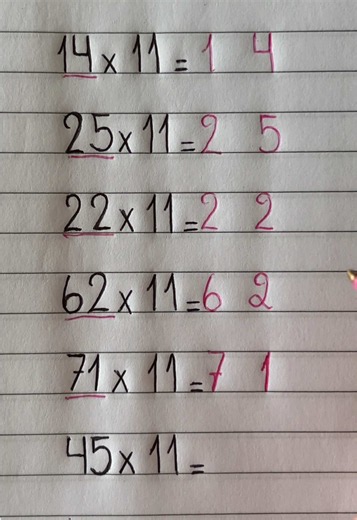 14 x 11 = 1 4
25 x 11 = 2 5
22 x 11 = 2 2
62 x 11 = 6 2
71 x 11 = 7 1
45 x 11 =